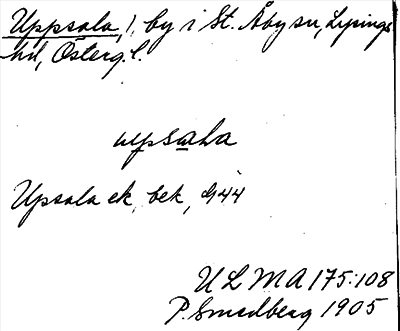 Uppsala, l, by i St. Åby sn, Lysings
hd, Österg. l.
upsala
Upsala ek, bek, G44
ULMA 175:108
P. Smedberg 1905